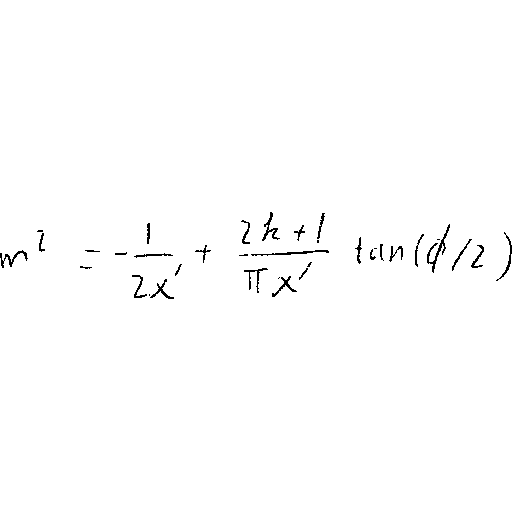 m^2 = -\frac{1}{2x'} + \frac{2k+1}{\pi x'} \tan(\phi/2)